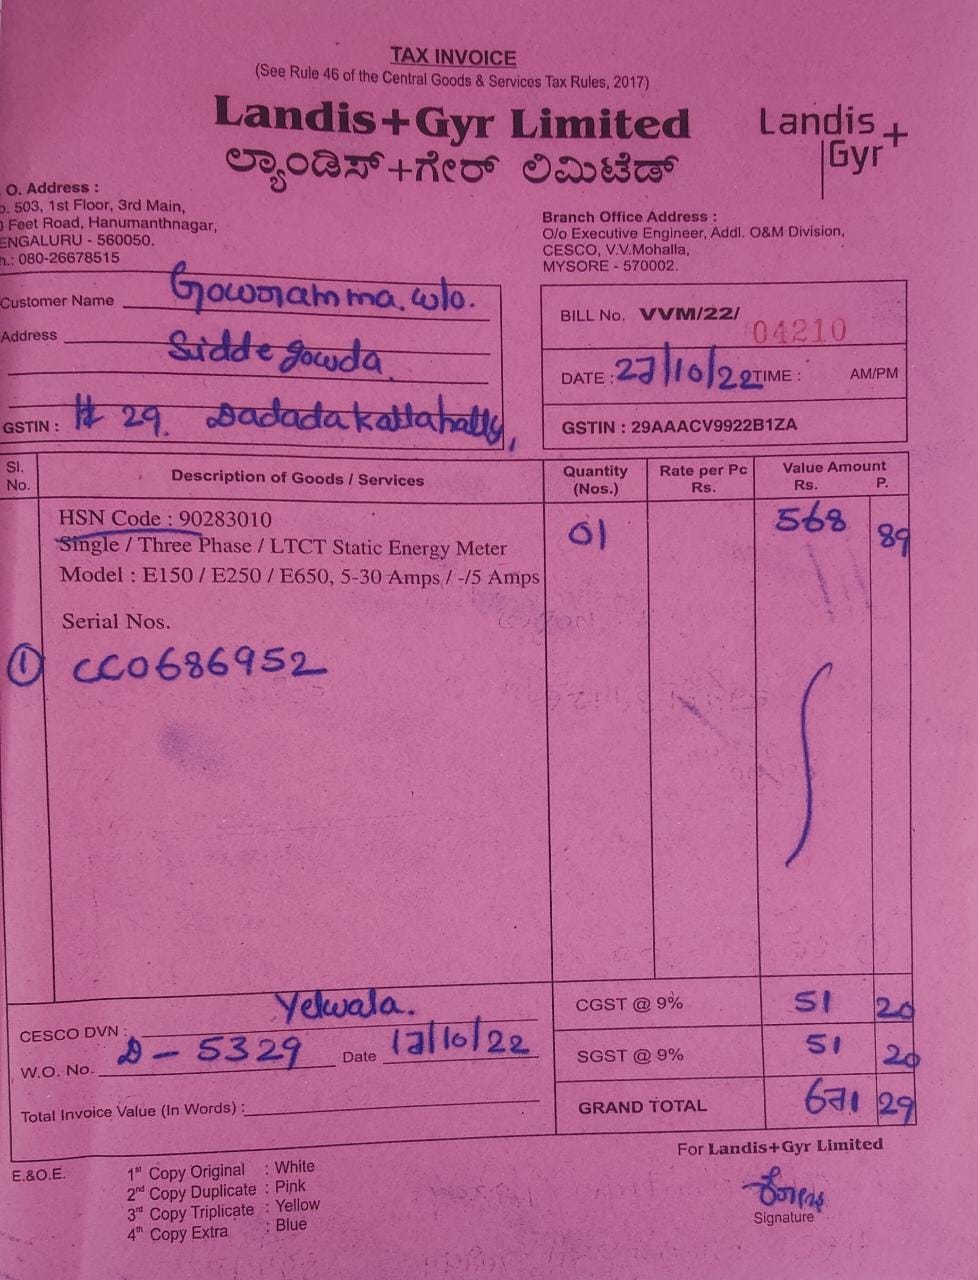 TAX INVOICE
(See Rule 46 of the Central Goods & Services Tax Rules, 2017)
Landis+Gyr Limited
ಲ್ಯಾಂಡಿಸ್+ಗೇರ್ ಲಿಮಿಟೆಡ್
Landis
Gyr+
O. Address :
503, 1st Floor, 3rd Main,
Feet Road, Hanumanthnagar,
ENGALURU - 560050.
h.: 080-26678515
Branch Office Address :
O/o Executive Engineer, Addl. O&M Division,
CESCO, V.V.Mohalla,
MYSORE - 570002.
Customer Name Gowramma. w/o.
Address Siddegowda
GSTIN : # 29. Dadadakallahally,
BILL No. VVM/22/ 04210
DATE : 27/10/22 TIME : AM/PM
GSTIN : 29AAACV9922B1ZA
Sl. No. Description of Goods / Services Quantity (Nos.) Rate per Pc Rs. Value Amount Rs. P.
HSN Code : 90283010 01 568 89
Single / Three Phase / LTCT Static Energy Meter
Model : E150 / E250 / E650, 5-30 Amps / -/5 Amps
Serial Nos.
① CC0686952
CESCO DVN : Yelwala.
W.O. No. D - 5329 Date 17/10/22
Total Invoice Value (In Words) :
CGST @ 9% 51 20
SGST @ 9% 51 20
GRAND TOTAL 671 29
For Landis+Gyr Limited
E.&O.E.
1st Copy Original : White
2nd Copy Duplicate : Pink
3rd Copy Triplicate : Yellow
4th Copy Extra : Blue
Signature